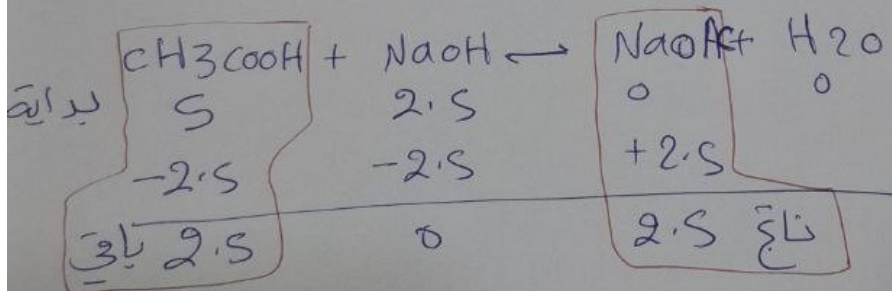 CH3COOH + NaOH → NaOAc + H2O
بداية 5 2.5 0 0
-2.5 -2.5 +2.5
باقي 2.5 0 2.5 ناتج